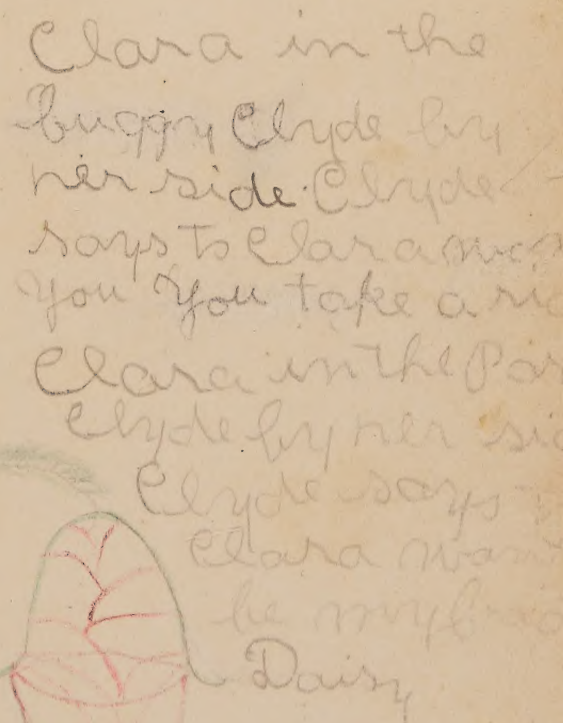 Clara in the
buggy Clyde by
her side. Clyde
says to Clara
You You take a
Clara in the
Clyde by her
Clyde says
Clara
be my
Daisy